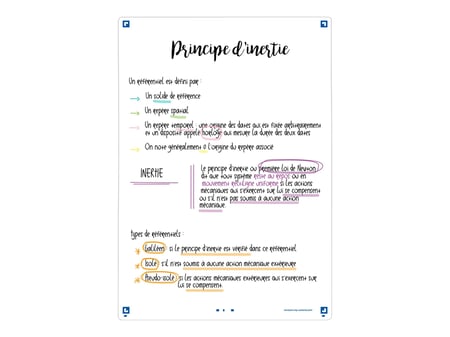 Principe d'inertie
Un référentiel est défini par :
Un solide de référence
Un repère spatial
Un repère temporel : une origine des dates qui est fixée arbitrairement
et un dispositif appelé horloge qui mesure la durée des deux dates
On note généralement O l'origine du repère associé
INERTIE
Le principe d'inertie ou première loi de Newton
dit que tout système reste au repos ou en
mouvement rectiligne uniforme si les actions
mécaniques qui s'exercent sur lui se compensent
ou s'il n'est pas soumis à aucune action
mécanique.
Types de référentiels :
Galiléen : si le principe d'inertie est vérifié dans ce référentiel
Isolé : s'il n'est soumis à aucune action mécanique extérieure
Pseudo-isolé : si les actions mécaniques extérieures qui s'exercent sur
lui se compensent.